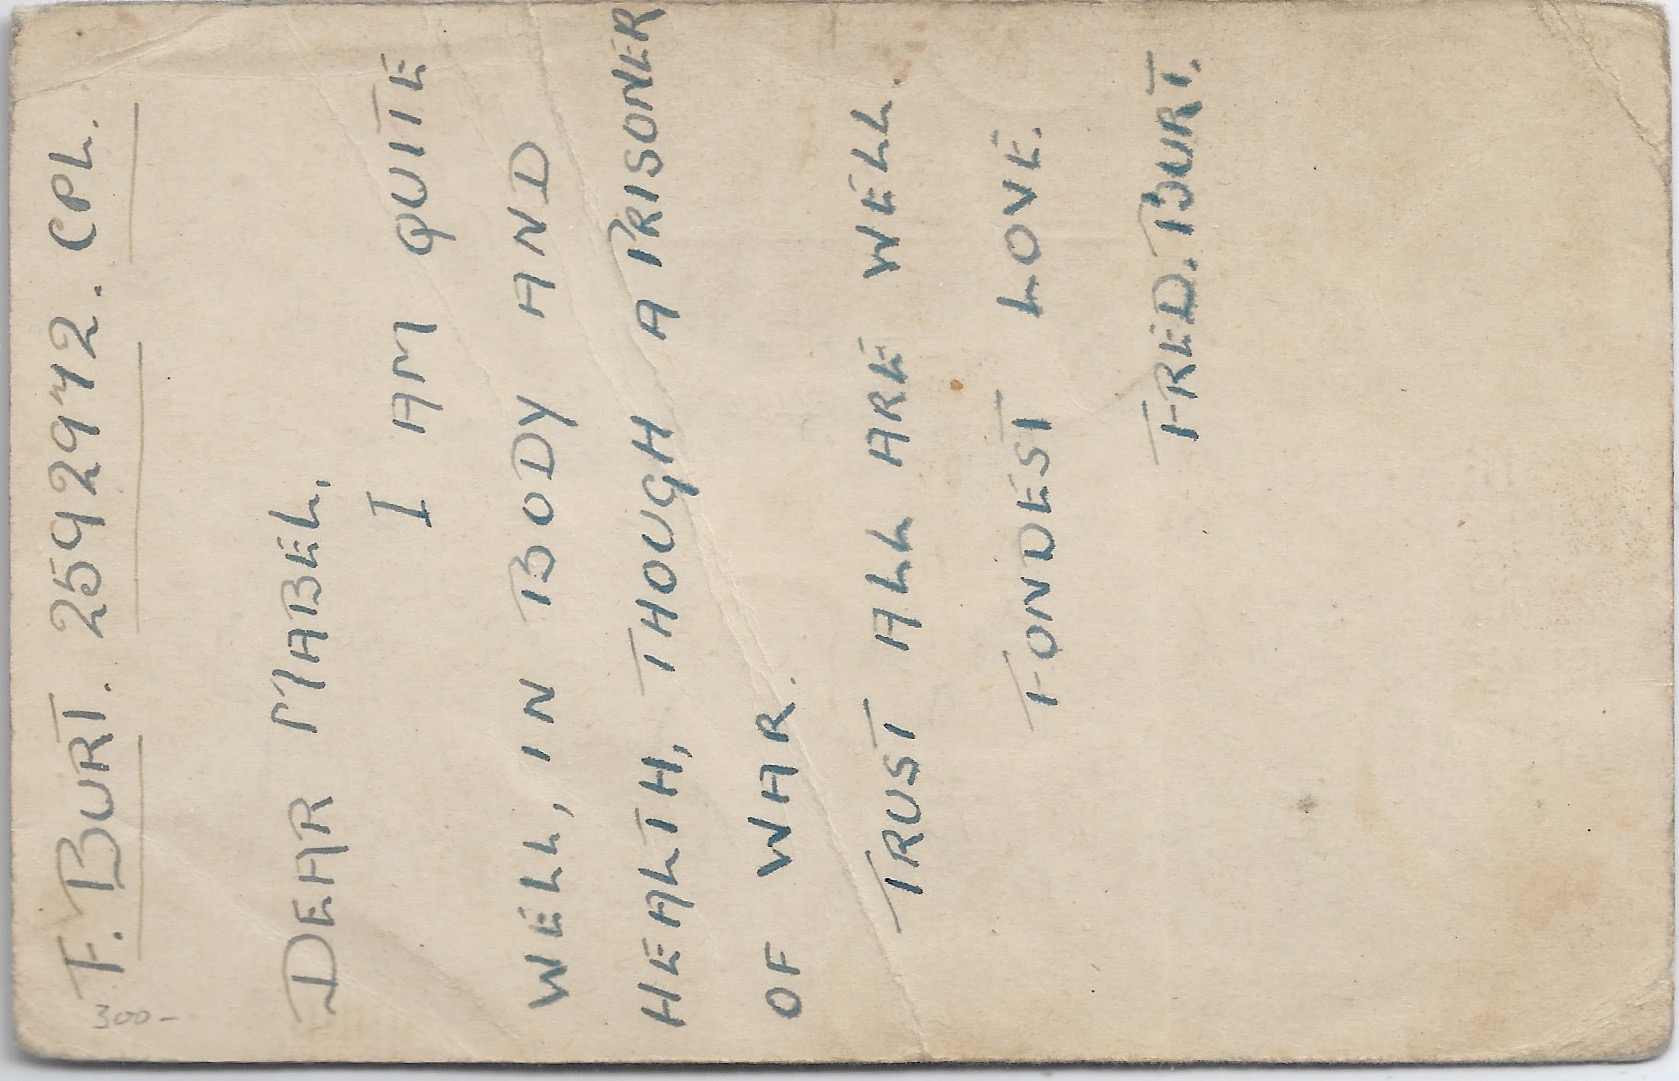 F. BURT. 2592972. CPL.
DEAR MABEL,
I AM QUITE
WELL, IN BODY AND
HEALTH, THOUGH A PRISONER
OF WAR.
TRUST ALL ARE WELL.
FONDEST LOVE.
FRED. BURT.
300-